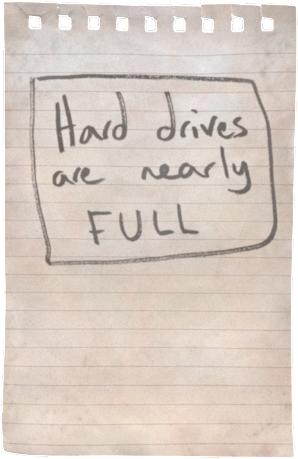 Hard drives
are nearly
FULL